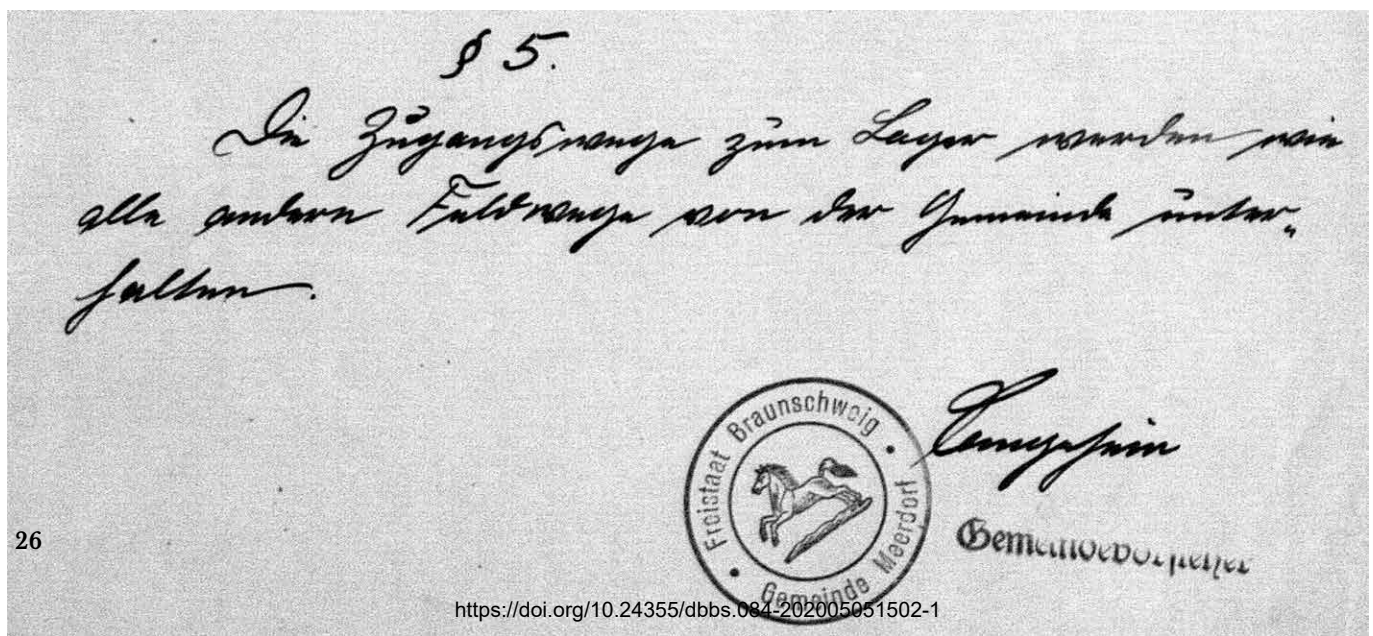 § 5.
Die Zugangswege zum Lager werden wie
alle andern Feldwege von der Gemeinde unter„
halten.
Freistaat Braunschweig
Gemeinde Meerdorf
Gemeindevorsteher
26
https://doi.org/10.24355/dbbs.084-202005051502-1